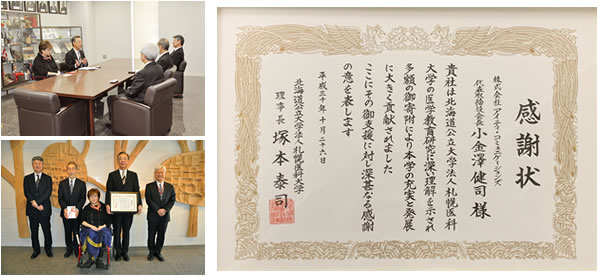 感謝状
株式会社アイティ・コミュニケーションズ
代表取締役会長 小金澤健司 様
貴社は北海道公立大学法人札幌医科
大学の医学教育研究に深い理解を示され
多額の御寄附により本学の充実と発展
に大きく貢献されました
ここにその御支援に対し深甚なる感謝
の意を表します
平成三十年十月二十六日
北海道公立大学法人札幌医科大学
理事長 塚本泰司